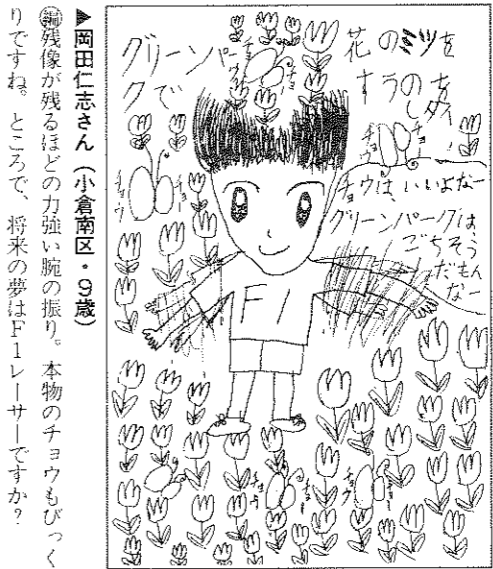 グリーンパー
クで
花のミツを
すうのしを
チョウ
チョウ
チョウ
チョウ
チョウは、いいよなー
グリーンパークは
ごちそう
だもん
なー
F1
チョウ
チョウ
チョウ
▶岡田仁志さん(小倉南区・9歳)
㊢残像が残るほどの力強い腕の振り。本物のチョウもびっく
りですね。ところで、将来の夢はF1レーサーですか?